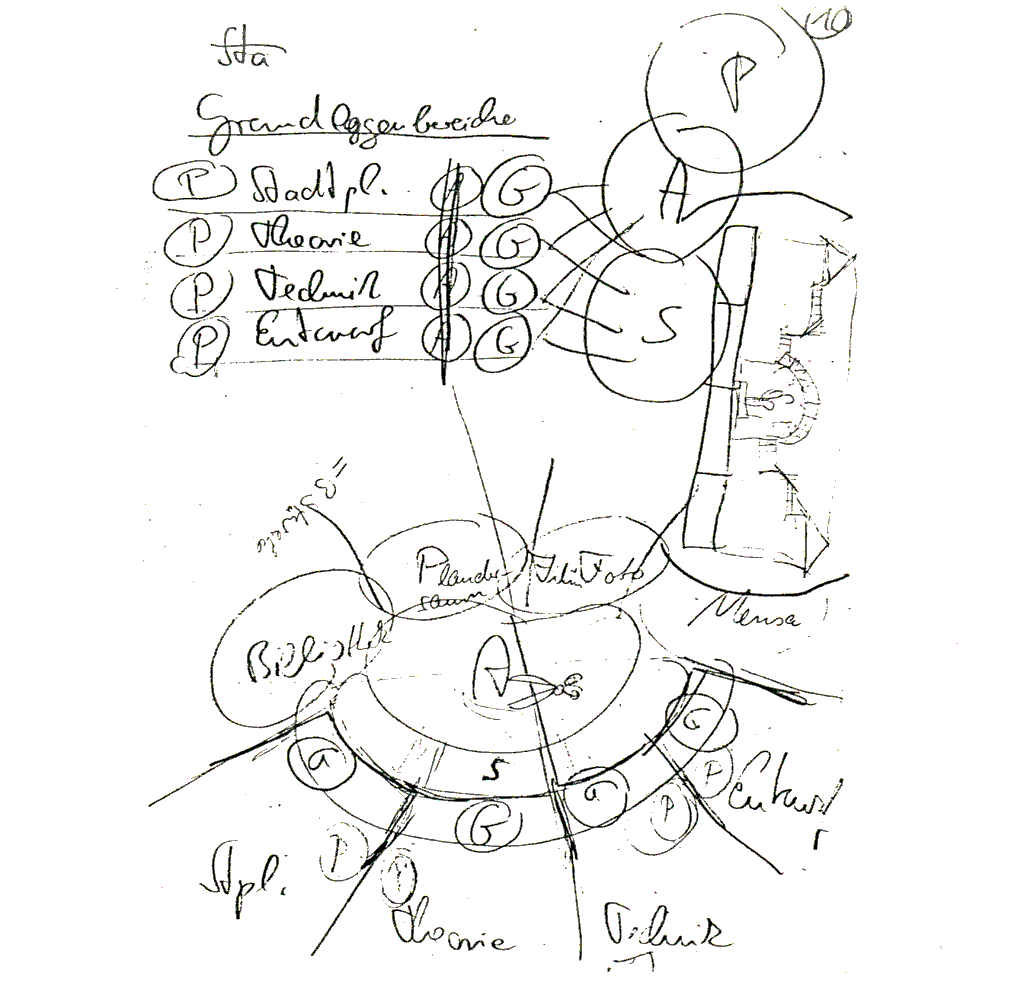 10
Sta
P
Grundlagenbereiche
A
P Stadtpl. A G
P Theorie A G
P Technik A G
P Entwurf A G
S
Film Foto
Mensa
Bibliothek
A
G
G
S
P
Entwurf
G
P
G
P
P
Stpl.
Theorie
Technik